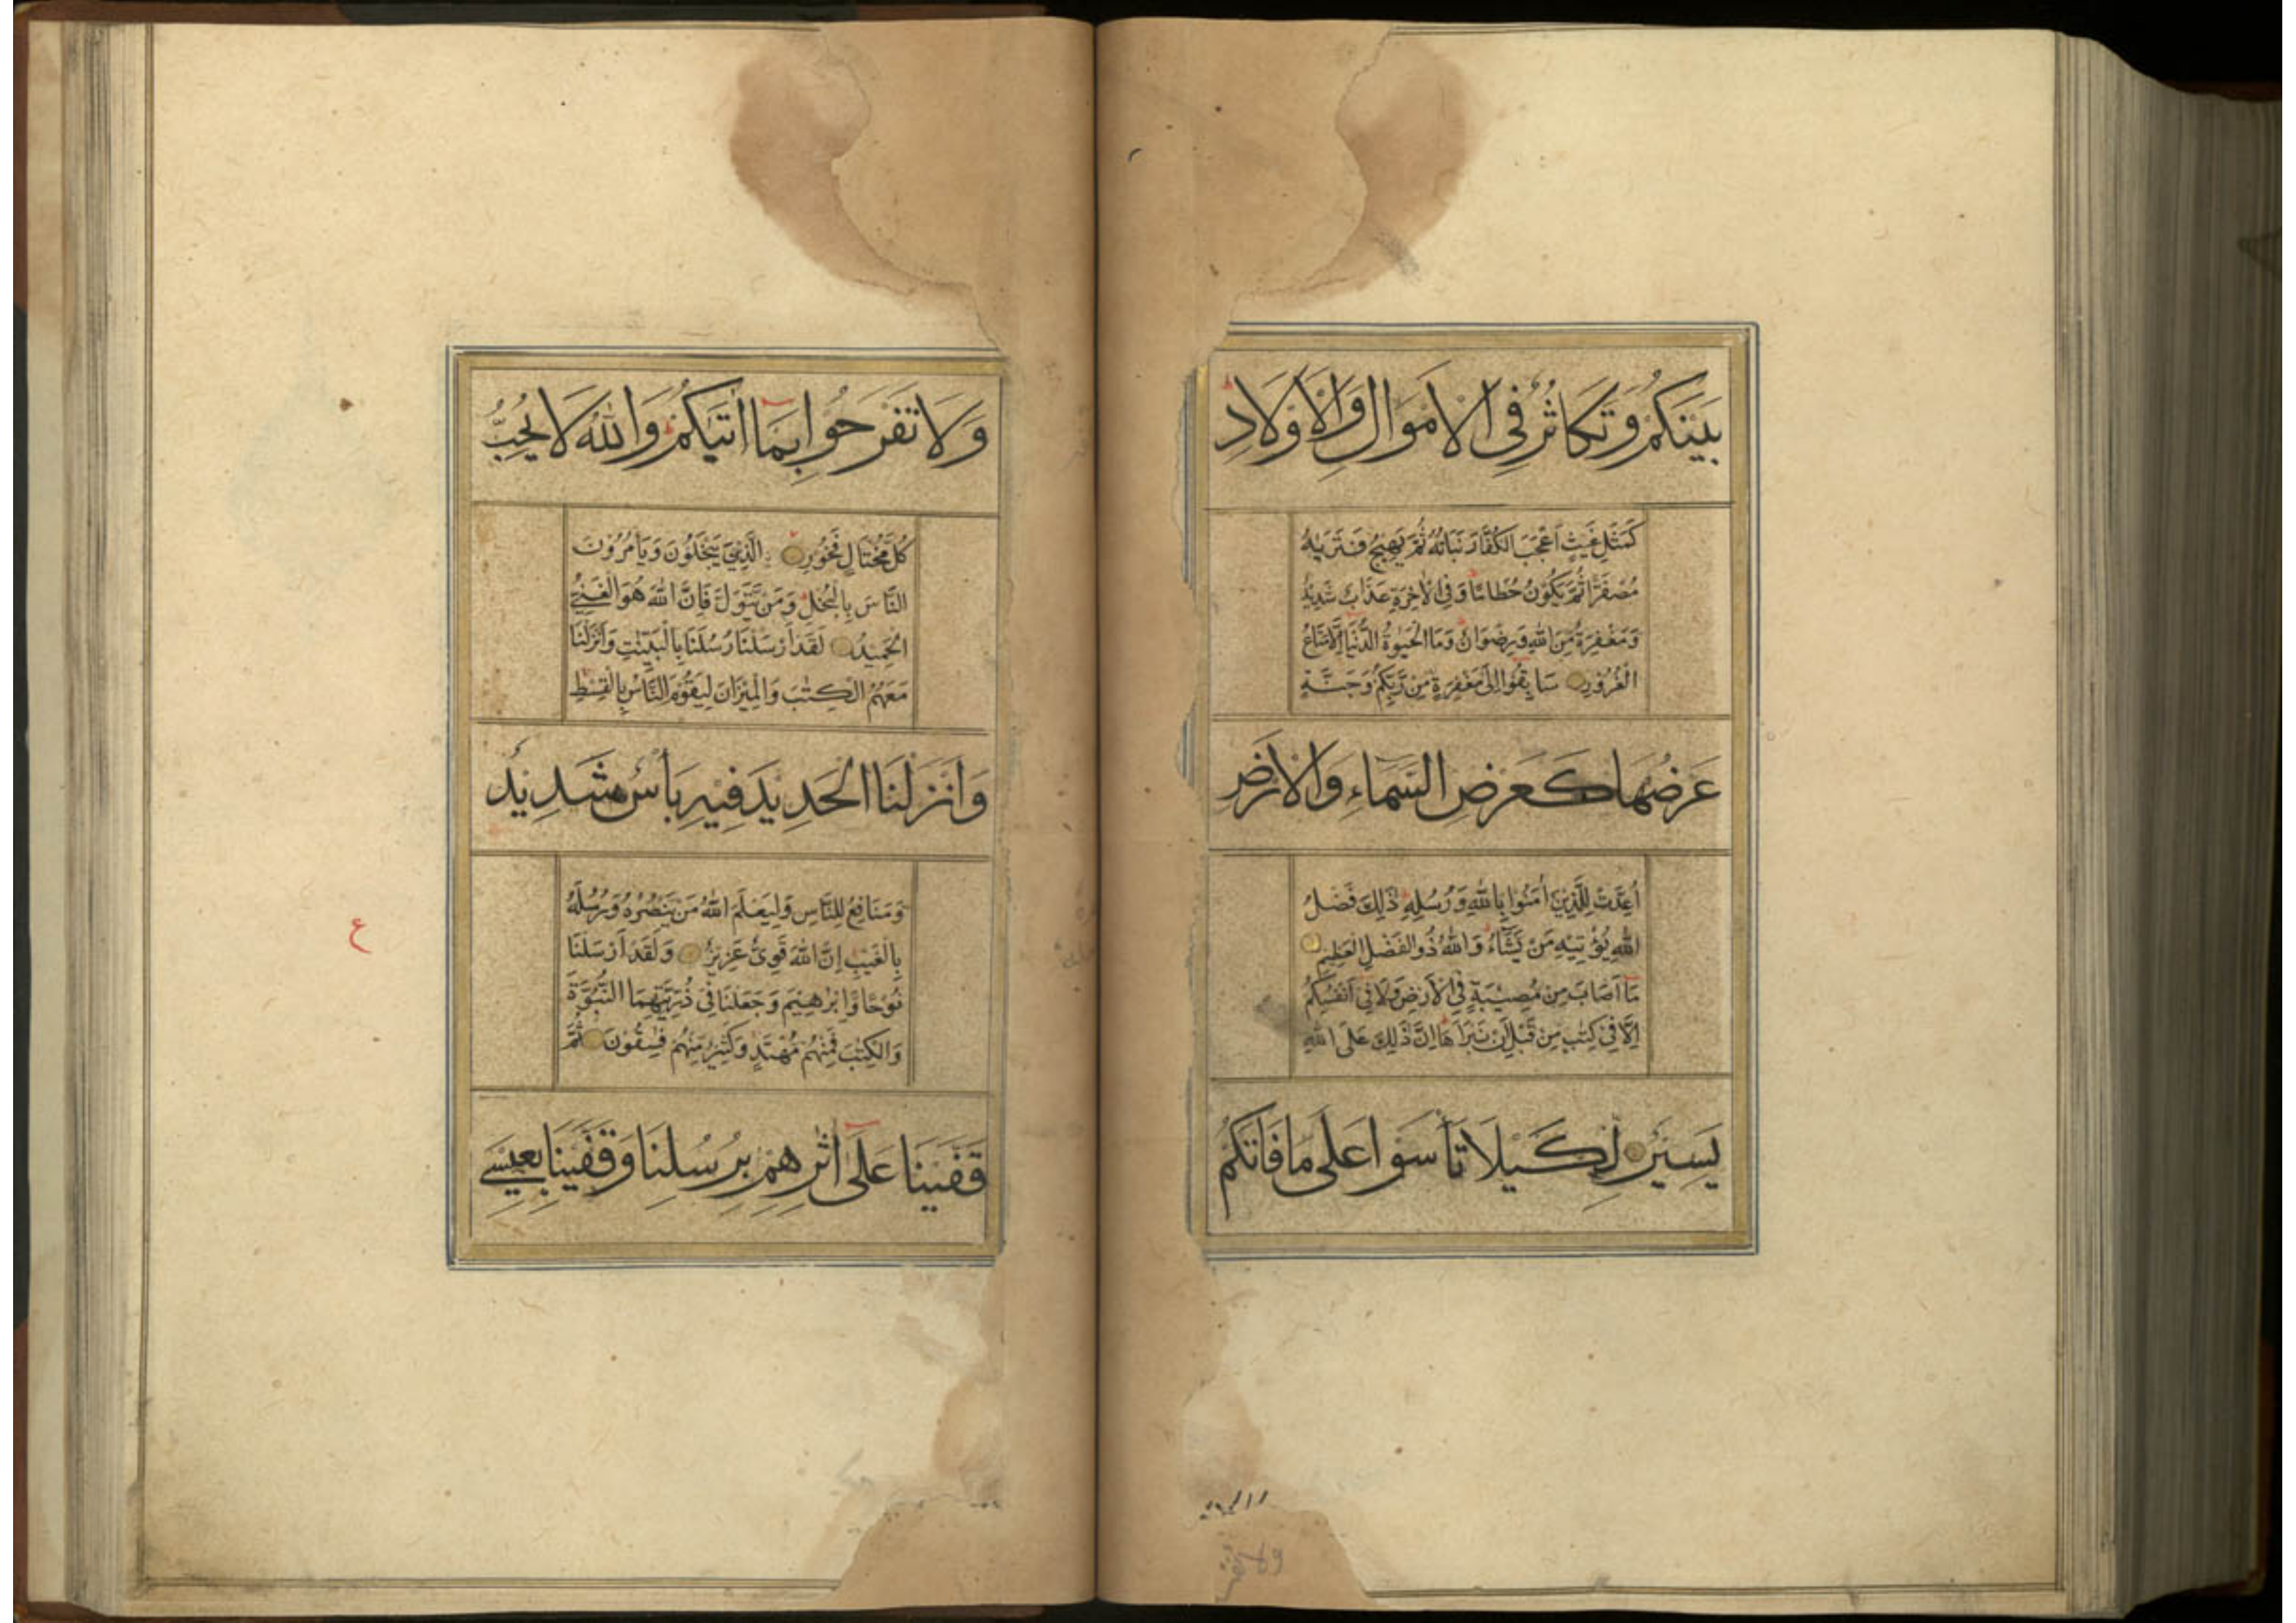 بَيْنَكُمْ وَتَكَاثُرٌ فِى الْاَمْوَالِ وَالْاَوْلَادِ
كَمَثَلِ غَيْثٍ اَعْجَبَ الْكُفَّارَ نَبَاتُهُ ثُمَّ يَهِيجُ فَتَرٰيهُ
مُصْفَرًّا ثُمَّ يَكُوْنُ حُطَامًا وَفِى الْاٰخِرَةِ عَذَابٌ شَدِيْدٌ
وَمَغْفِرَةٌ مِنَ اللّٰهِ وَرِضْوَانٌ وَمَا الْحَيٰوةُ الدُّنْيَا اِلَّا مَتَاعُ
الْغُرُوْرِ سَابِقُوْا اِلٰى مَغْفِرَةٍ مِنْ رَبِّكُمْ وَجَنَّةٍ
عَرْضُهَا كَعَرْضِ السَّمَاءِ وَالْاَرْضِ
اُعِدَّتْ لِلَّذِيْنَ اٰمَنُوْا بِاللّٰهِ وَرُسُلِهِ ذٰلِكَ فَضْلُ
اللّٰهِ يُؤْتِيْهِ مَنْ يَّشَاءُ وَاللّٰهُ ذُوالْفَضْلِ الْعَظِيْمِ
مَا اَصَابَ مِنْ مُصِيْبَةٍ فِى الْاَرْضِ وَلَا فِى اَنْفُسِكُمْ
اِلَّا فِى كِتٰبٍ مِنْ قَبْلِ اَنْ نَبْرَاَهَا اِنَّ ذٰلِكَ عَلَى اللّٰهِ
يَسِيْرٌ لِكَيْلَا تَأْسَوْا عَلٰى مَا فَاتَكُمْ
وَلَا تَفْرَحُوْا بِمَا اٰتٰيكُمْ وَاللّٰهُ لَا يُحِبُّ
كُلَّ مُخْتَالٍ فَخُوْرٍ الَّذِيْنَ يَبْخَلُوْنَ وَيَأْمُرُوْنَ
النَّاسَ بِالْبُخْلِ وَمَنْ يَّتَوَلَّ فَاِنَّ اللّٰهَ هُوَ الْغَنِىُّ
الْحَمِيْدُ لَقَدْ اَرْسَلْنَا رُسُلَنَا بِالْبَيِّنٰتِ وَاَنْزَلْنَا
مَعَهُمُ الْكِتٰبَ وَالْمِيْزَانَ لِيَقُوْمَ النَّاسُ بِالْقِسْطِ
وَاَنْزَلْنَا الْحَدِيْدَ فِيْهِ بَأْسٌ شَدِيْدٌ
وَمَنَافِعُ لِلنَّاسِ وَلِيَعْلَمَ اللّٰهُ مَنْ يَّنْصُرُهُ وَرُسُلَهُ
بِالْغَيْبِ اِنَّ اللّٰهَ قَوِىٌّ عَزِيْزٌ وَلَقَدْ اَرْسَلْنَا
نُوْحًا وَّاِبْرٰهِيْمَ وَجَعَلْنَا فِى ذُرِّيَّتِهِمَا النُّبُوَّةَ
وَالْكِتٰبَ فَمِنْهُمْ مُهْتَدٍ وَكَثِيْرٌ مِنْهُمْ فٰسِقُوْنَ ثُمَّ
قَفَّيْنَا عَلٰى اٰثٰرِهِمْ بِرُسُلِنَا وَقَفَّيْنَا بِعِيْسَى
ع